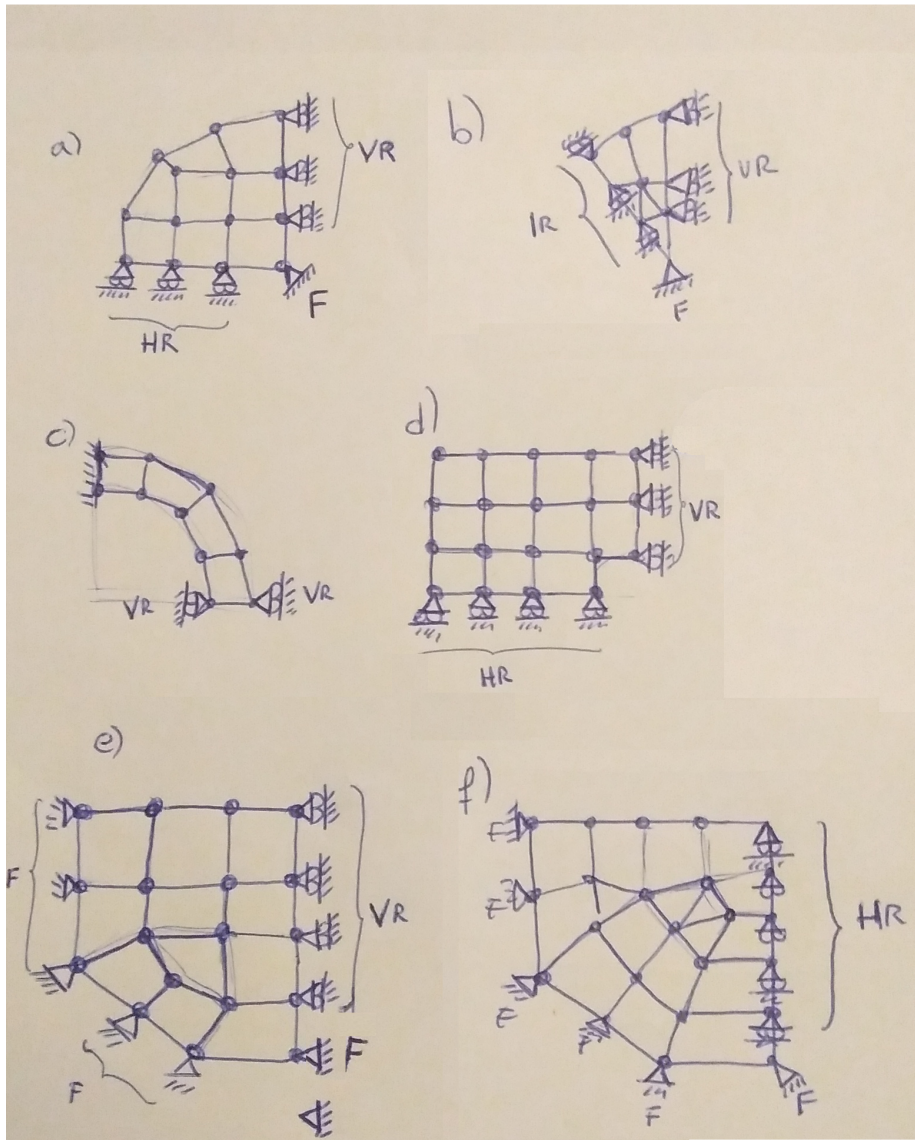 a)
VR
F
HR
b)
VR
IR
F
c)
VR
VR
d)
VR
HR
e)
F
VR
F
F
f)
F
F
HR
F
F
F
F